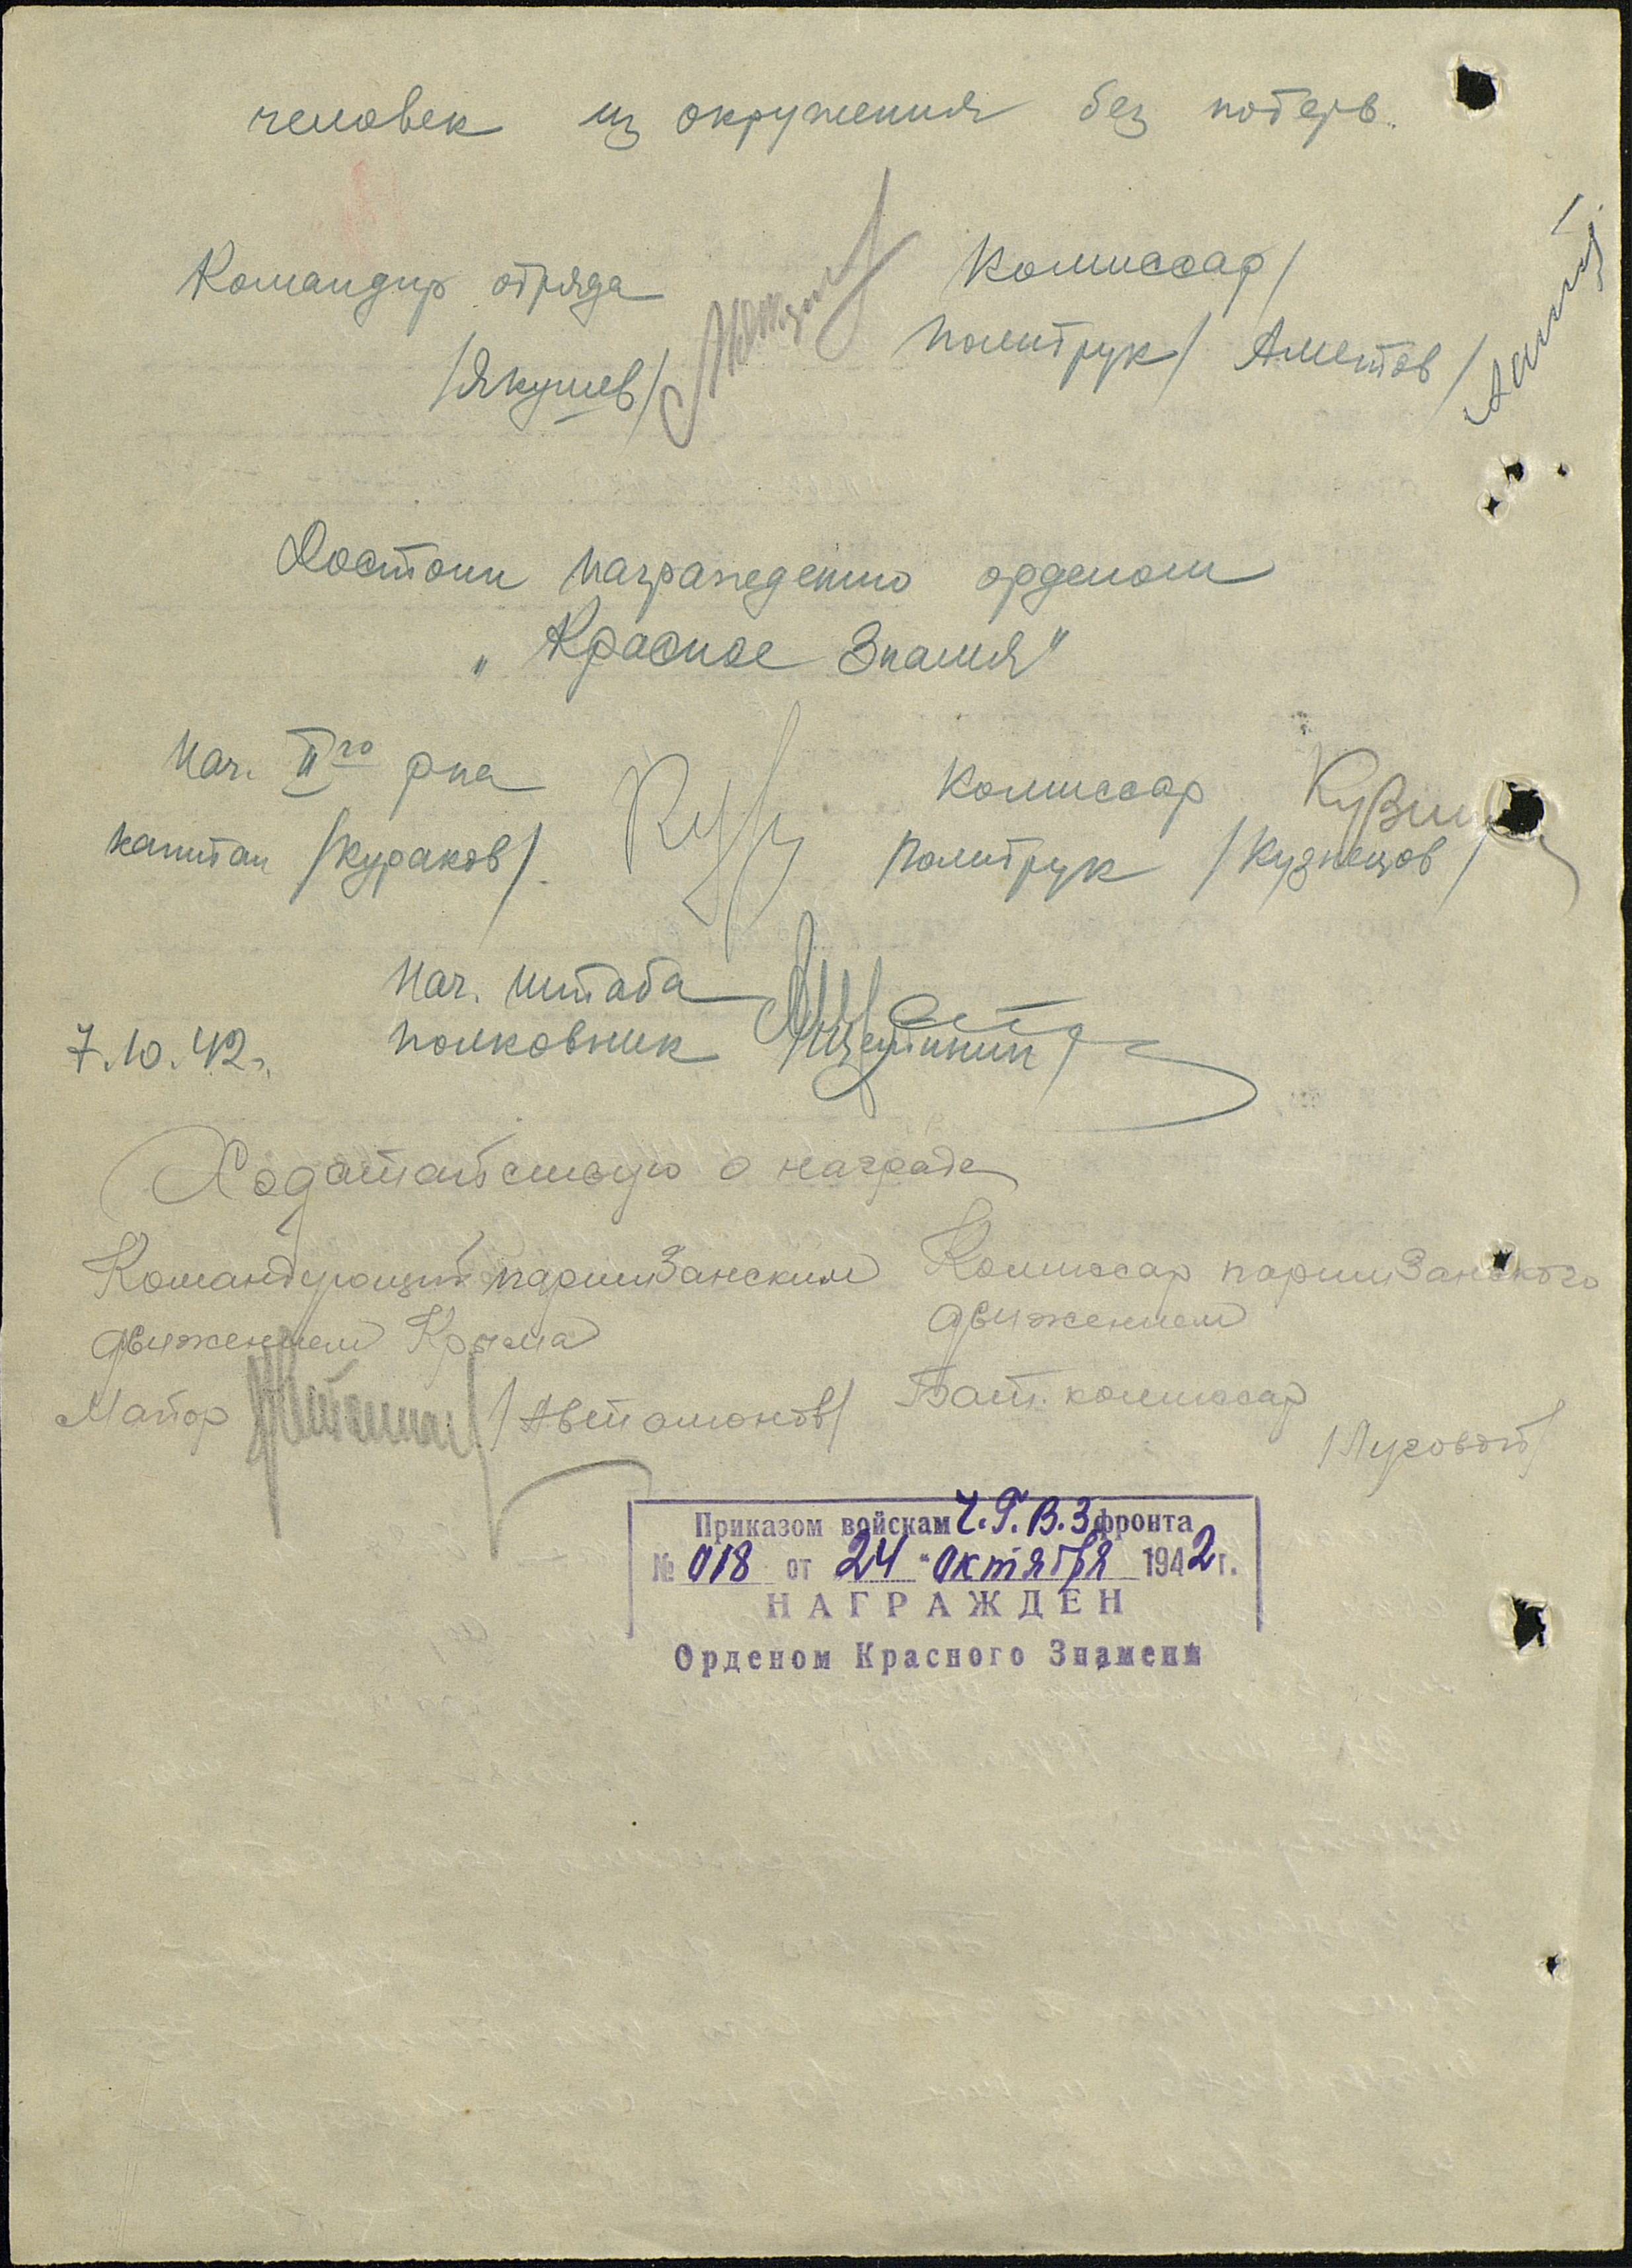 человек из окружения без потерь.
Командир отряда
/Якушев/
Комиссар/
политрук/ Аметов/
Достоин награждению орденом
„Красное Знамя"
Нач. IIго р-на
капитан /Кураков/
Комиссар
политрук /Кузнецов/
Нач. штаба
полковник /Щетинин/
7.10.42г.
Ходатайствую о награде
Командующий партизанским
движением Крыма
Майор /Автомонов/
Комиссар партизанского
движением
Бат. комиссар
/Луговой/
Приказом войскам Ч.Г.В.З фронта
№ 018 от 24 "октября 1942 г.
НАГРАЖДЕН
Орденом Красного Знамени